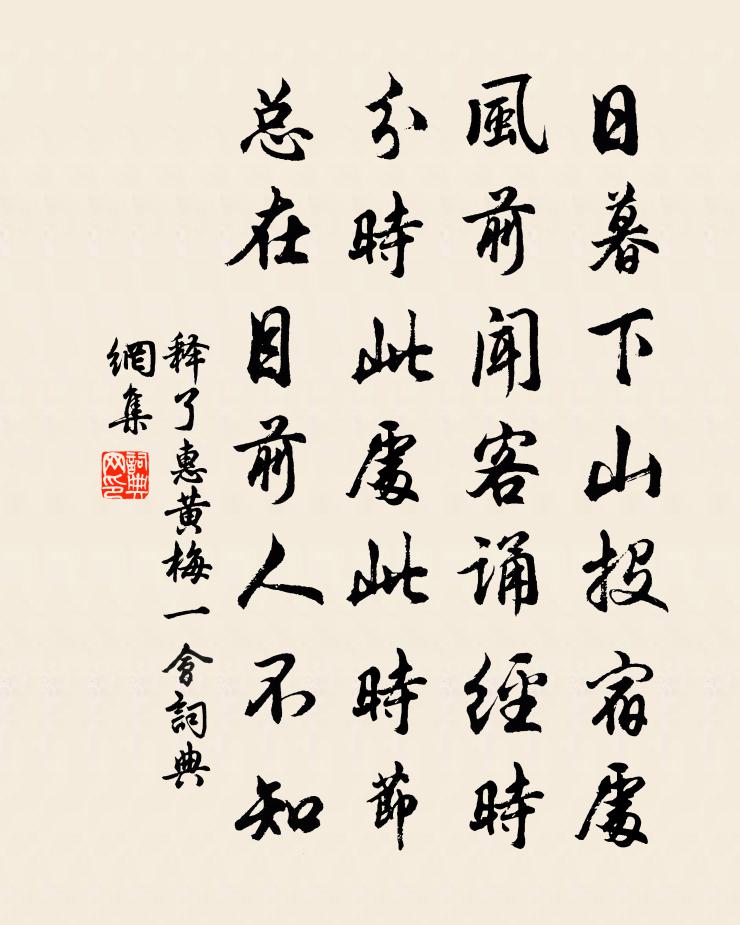 日暮下山投宿處
風前聞客誦經時
分時此處此時節
总在目前人不知
释了惠黄梅一會詞典
網集
詞典
网印